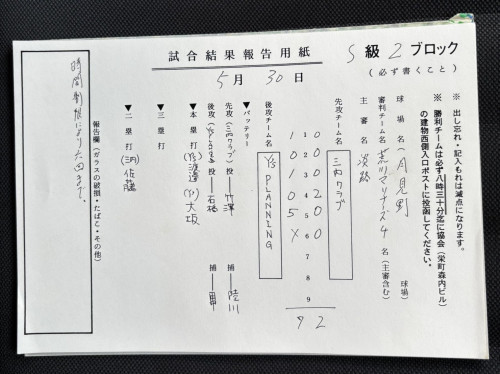 試合結果報告用紙
S級2ブロック
(必ず書くこと)
5月30日
※ 出し忘れ・記入もれは減点になります。
※ 勝利チームは必ず八時三十分迄に協会(栄町森内ビル)
の建物西側入口ポストに投函してください。
球場名(月見野 球場)
審判チーム名(荒川マリナーズ 4名(主審含む)
主審名(淡路
先攻チーム名
三内クラブ
1 2 3 4 5 6 7 8 9
0 0 0 2 0 0 2
1 0 1 0 5 X 7
後攻チーム名
Y's PLANNING
▼バッテリー
先攻(三内クラブ)投ー竹澤 捕ー陸川
後攻 投ー石橋 捕ー
▼本塁打 (Y's)渡邉 (Y's)大坂
▼三塁打
▼二塁打 (三内)佐藤
報告欄(ガラスの破損・たばこ・その他)
時間制限により六回まで。